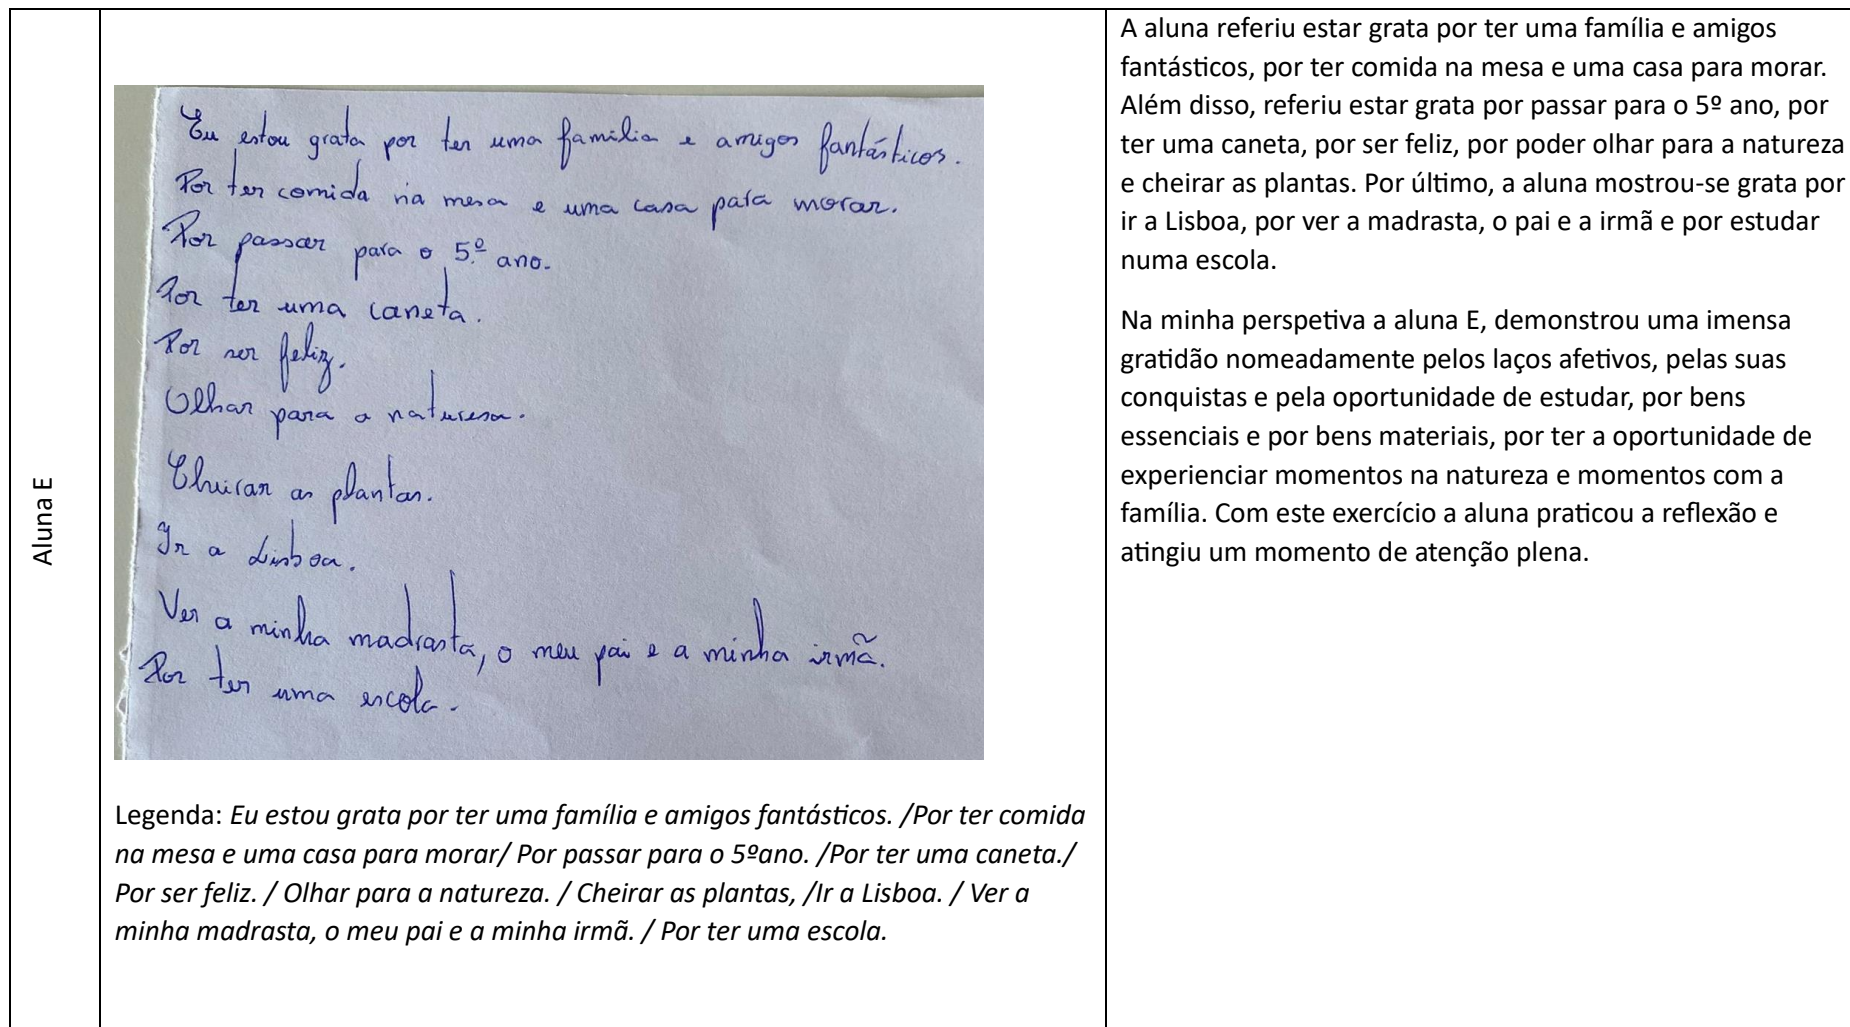 Aluna E
Eu estou grata por ter uma familia e amigos fantásticos.
Por ter comida na mesa e uma casa para morar.
Por passar para o 5.º ano.
Por ter uma caneta.
Por ser feliz.
Olhar para a naturesa.
Cheirar as plantas.
Ir a Lisboa.
Ver a minha madrasta, o meu pai e a minha irmã.
Por ter uma escola.
Legenda: Eu estou grata por ter uma família e amigos fantásticos. /Por ter comida
na mesa e uma casa para morar/ Por passar para o 5ºano. /Por ter uma caneta./
Por ser feliz. / Olhar para a natureza. / Cheirar as plantas, /Ir a Lisboa. / Ver a
minha madrasta, o meu pai e a minha irmã. / Por ter uma escola.
A aluna referiu estar grata por ter uma família e amigos
fantásticos, por ter comida na mesa e uma casa para morar.
Além disso, referiu estar grata por passar para o 5º ano, por
ter uma caneta, por ser feliz, por poder olhar para a natureza
e cheirar as plantas. Por último, a aluna mostrou-se grata por
ir a Lisboa, por ver a madrasta, o pai e a irmã e por estudar
numa escola.
Na minha perspetiva a aluna E, demonstrou uma imensa
gratidão nomeadamente pelos laços afetivos, pelas suas
conquistas e pela oportunidade de estudar, por bens
essenciais e por bens materiais, por ter a oportunidade de
experienciar momentos na natureza e momentos com a
família. Com este exercício a aluna praticou a reflexão e
atingiu um momento de atenção plena.